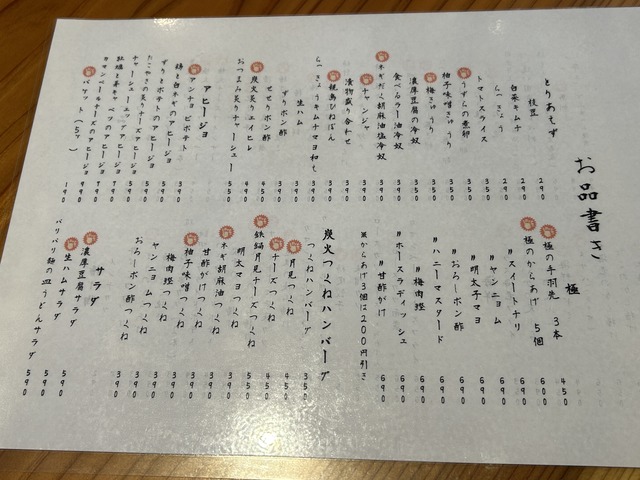 お品書き
とりあえず
枝豆 290
白菜キムチ 290
らっきょう 290
トマトスライス 350
うずらの煮卵 350
柚子味噌きゅうり 350
梅きゅうり 350
濃厚豆腐の冷奴 350
食べるラー油冷奴 390
ネギだく胡麻油塩冷奴 390
チャンジャ 390
漬物盛り合わせ 390
焼鳥ひねぽん 390
らっきょうキムチマヨ和え 390
生ハム 390
ずりポン酢 390
せせりポン酢 450
炭火炙りエイヒレ 490
おつまみ炙りチャーシュー 550
アヒージョ
アンチョビポテト
鶏と白ネギのアヒージョ 390
ずりとポテトのアヒージョ 590
たこやきの炙りチーズアヒージョ 590
チャーシューエッグアヒージョ 590
牡蠣と春キャベツのアヒージョ 790
カマンベールチーズのアヒージョ 790
バケット(5ヶ) 190
極
極の手羽先 3本 450
極のからあげ 5個 600
〃スイートチリ 690
〃ヤンニョム 690
〃明太子マヨ 690
〃おろしポン酢 690
〃ハニーマスタード 690
〃梅肉煌 690
〃ホースラディッシュ 690
〃甘酢がけ 690
※からあげ3個は200円引き
炭火つくねハンバーグ
つくねハンバーグ 350
月見つくね 450
チーズつくね 450
鉄鍋月見チーズつくね 550
明太マヨつくね 450
ネギ胡麻油つくね 390
甘酢がけつくね 390
柚子味噌つくね 390
梅肉煌つくね 390
ヤンニョムつくね 390
おろしポン酢つくね 390
サラダ
濃厚豆腐サラダ 590
生ハムサラダ 590
パリパリ麺の皿うどんサラダ 590